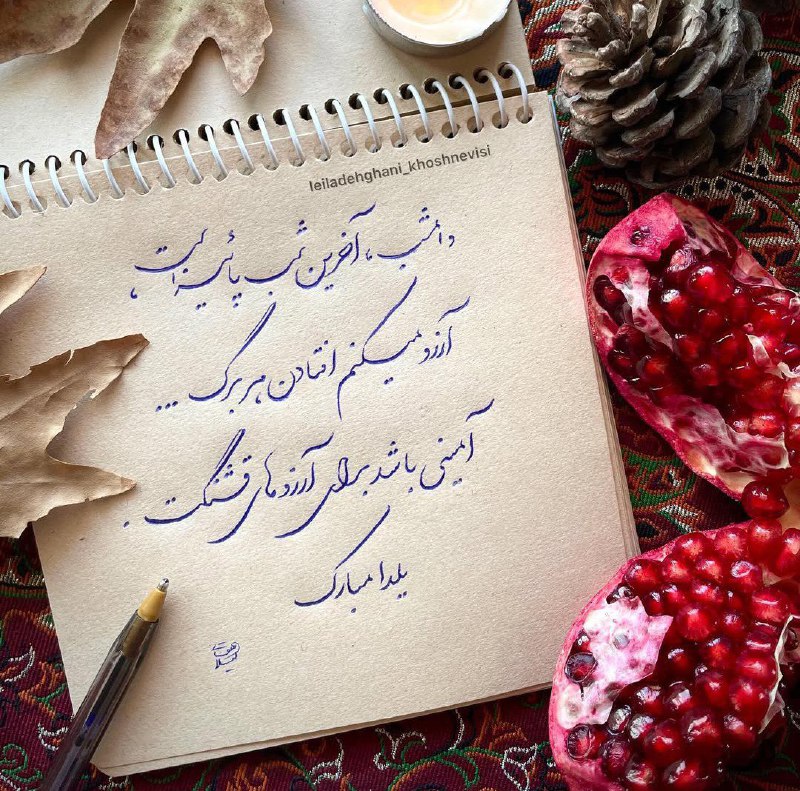 leiladehghani_khoshnevisi
و امشب ، آخرین شب پائیز است ،
آرزو میکنم افتادن هر برگ ...
آمینی باشد برای آرزوهای قشنگت .
یلدا مبارک